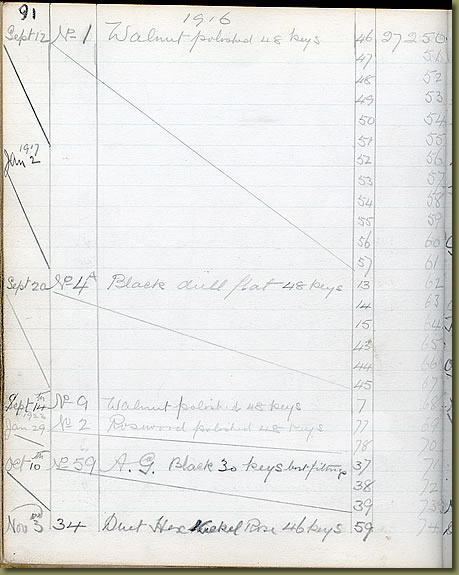 91
1916
Sept 12 No 1 Walnut polished 48 keys 46 27250
47 51
48 52
49 53
50 54
51 55
1917
Jan 2 52 56
53 57
54 58
55 59
56 60
57 61
Sept 20 No 4A Black dull flat 48 keys 13 62
14 63
15 64
43 65
44 66
45 67
Sept 14th No 9 Walnut polished 48 keys 7 68
Jan 29 No 2 Rosewood polished 48 keys 77 69
78 70
Oct 10th No 59 A.G. Black 30 keys best fittings 37 71
38 72
39 73
Nov 3rd 34 Duet Hex Nickel 46 keys 59 74